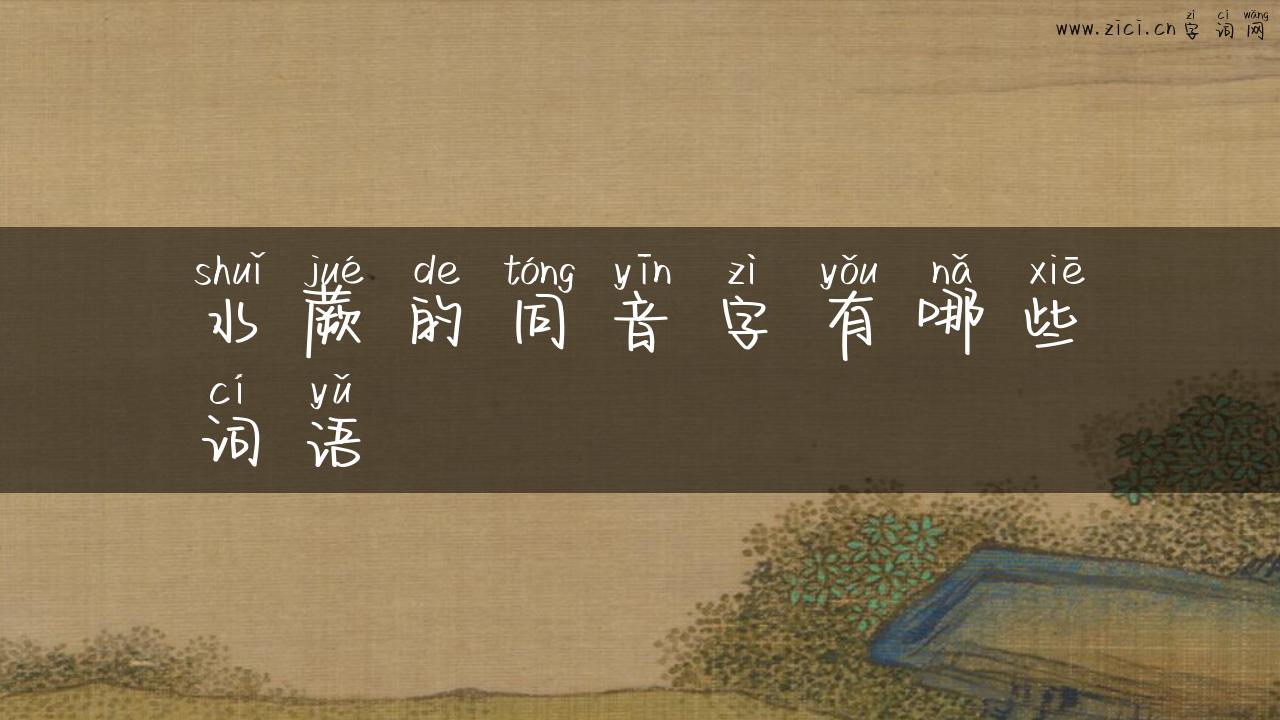 zì cí wǎng
www.zici.cn 字 词 网
shuǐ jué de tóng yīn zì yǒu nǎ xiē
水 蕨 的 同 音 字 有 哪 些
cí yǔ
词 语